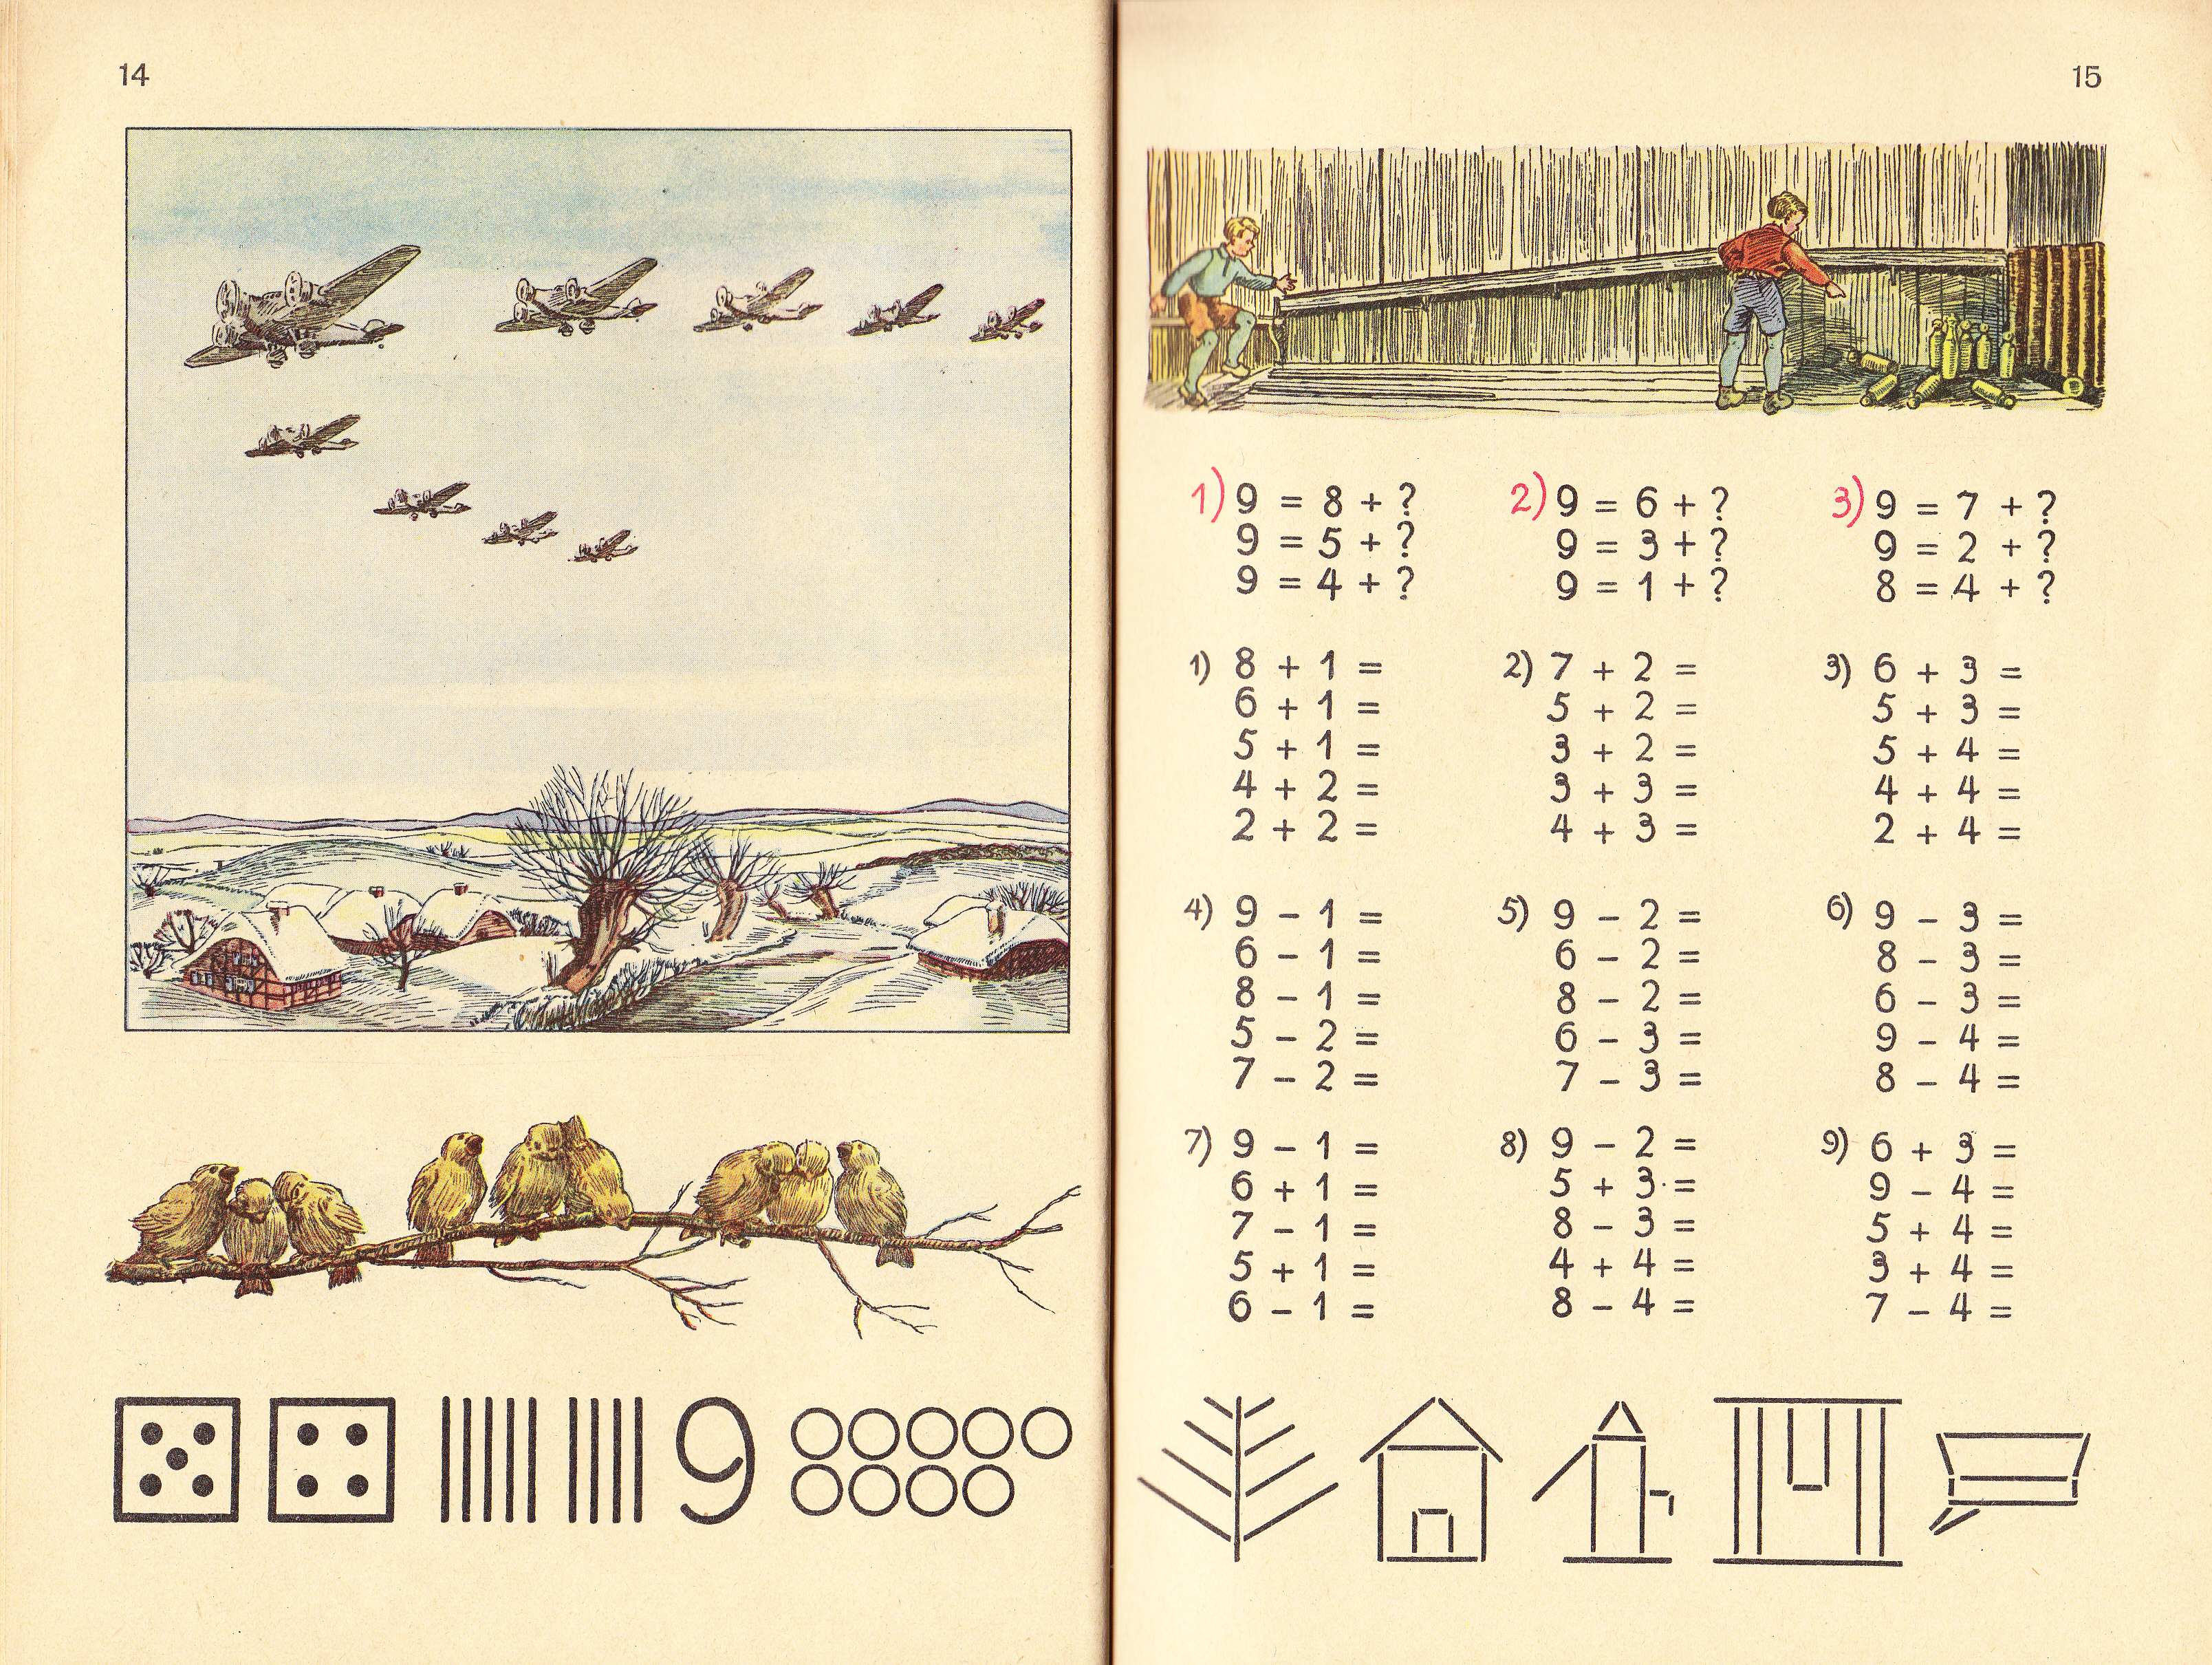 14
9
15
1) 9 = 8 + ? 2) 9 = 6 + ? 3) 9 = 7 + ?
9 = 5 + ? 9 = 3 + ? 9 = 2 + ?
9 = 4 + ? 9 = 1 + ? 8 = 4 + ?
1) 8 + 1 = 2) 7 + 2 = 3) 6 + 3 =
6 + 1 = 5 + 2 = 5 + 3 =
5 + 1 = 3 + 2 = 5 + 4 =
4 + 2 = 3 + 3 = 4 + 4 =
2 + 2 = 4 + 3 = 2 + 4 =
4) 9 – 1 = 5) 9 – 2 = 6) 9 – 3 =
6 – 1 = 6 – 2 = 8 – 3 =
8 – 1 = 8 – 2 = 6 – 3 =
5 – 2 = 6 – 3 = 9 – 4 =
7 – 2 = 7 – 3 = 8 – 4 =
7) 9 – 1 = 8) 9 – 2 = 9) 6 + 3 =
6 + 1 = 5 + 3 = 9 – 4 =
7 – 1 = 8 – 3 = 5 + 4 =
5 + 1 = 4 + 4 = 3 + 4 =
6 – 1 = 8 – 4 = 7 – 4 =